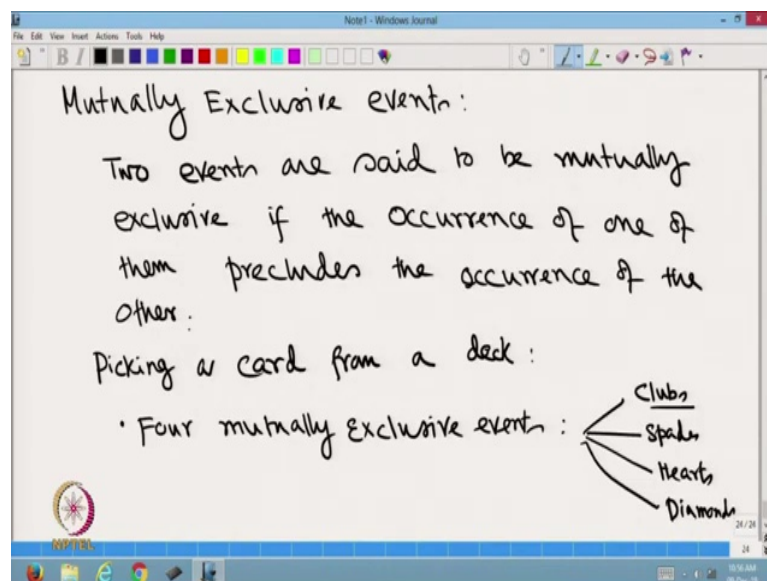 Note1 - Windows Journal
File Edit View Insert Actions Tools Help
Mutually Exclusive events:
Two events are said to be mutually
exclusive if the occurrence of one of
them precludes the occurrence of the
other.
Picking a card from a deck:
• Four mutually exclusive events:
Clubs
Spades
Hearts
Diamonds
NPTEL
24 / 24
24
10:56 AM